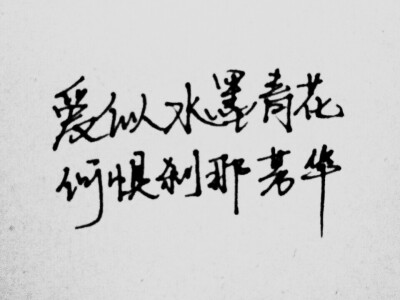 爱似水墨青花
何惧刹那芳华